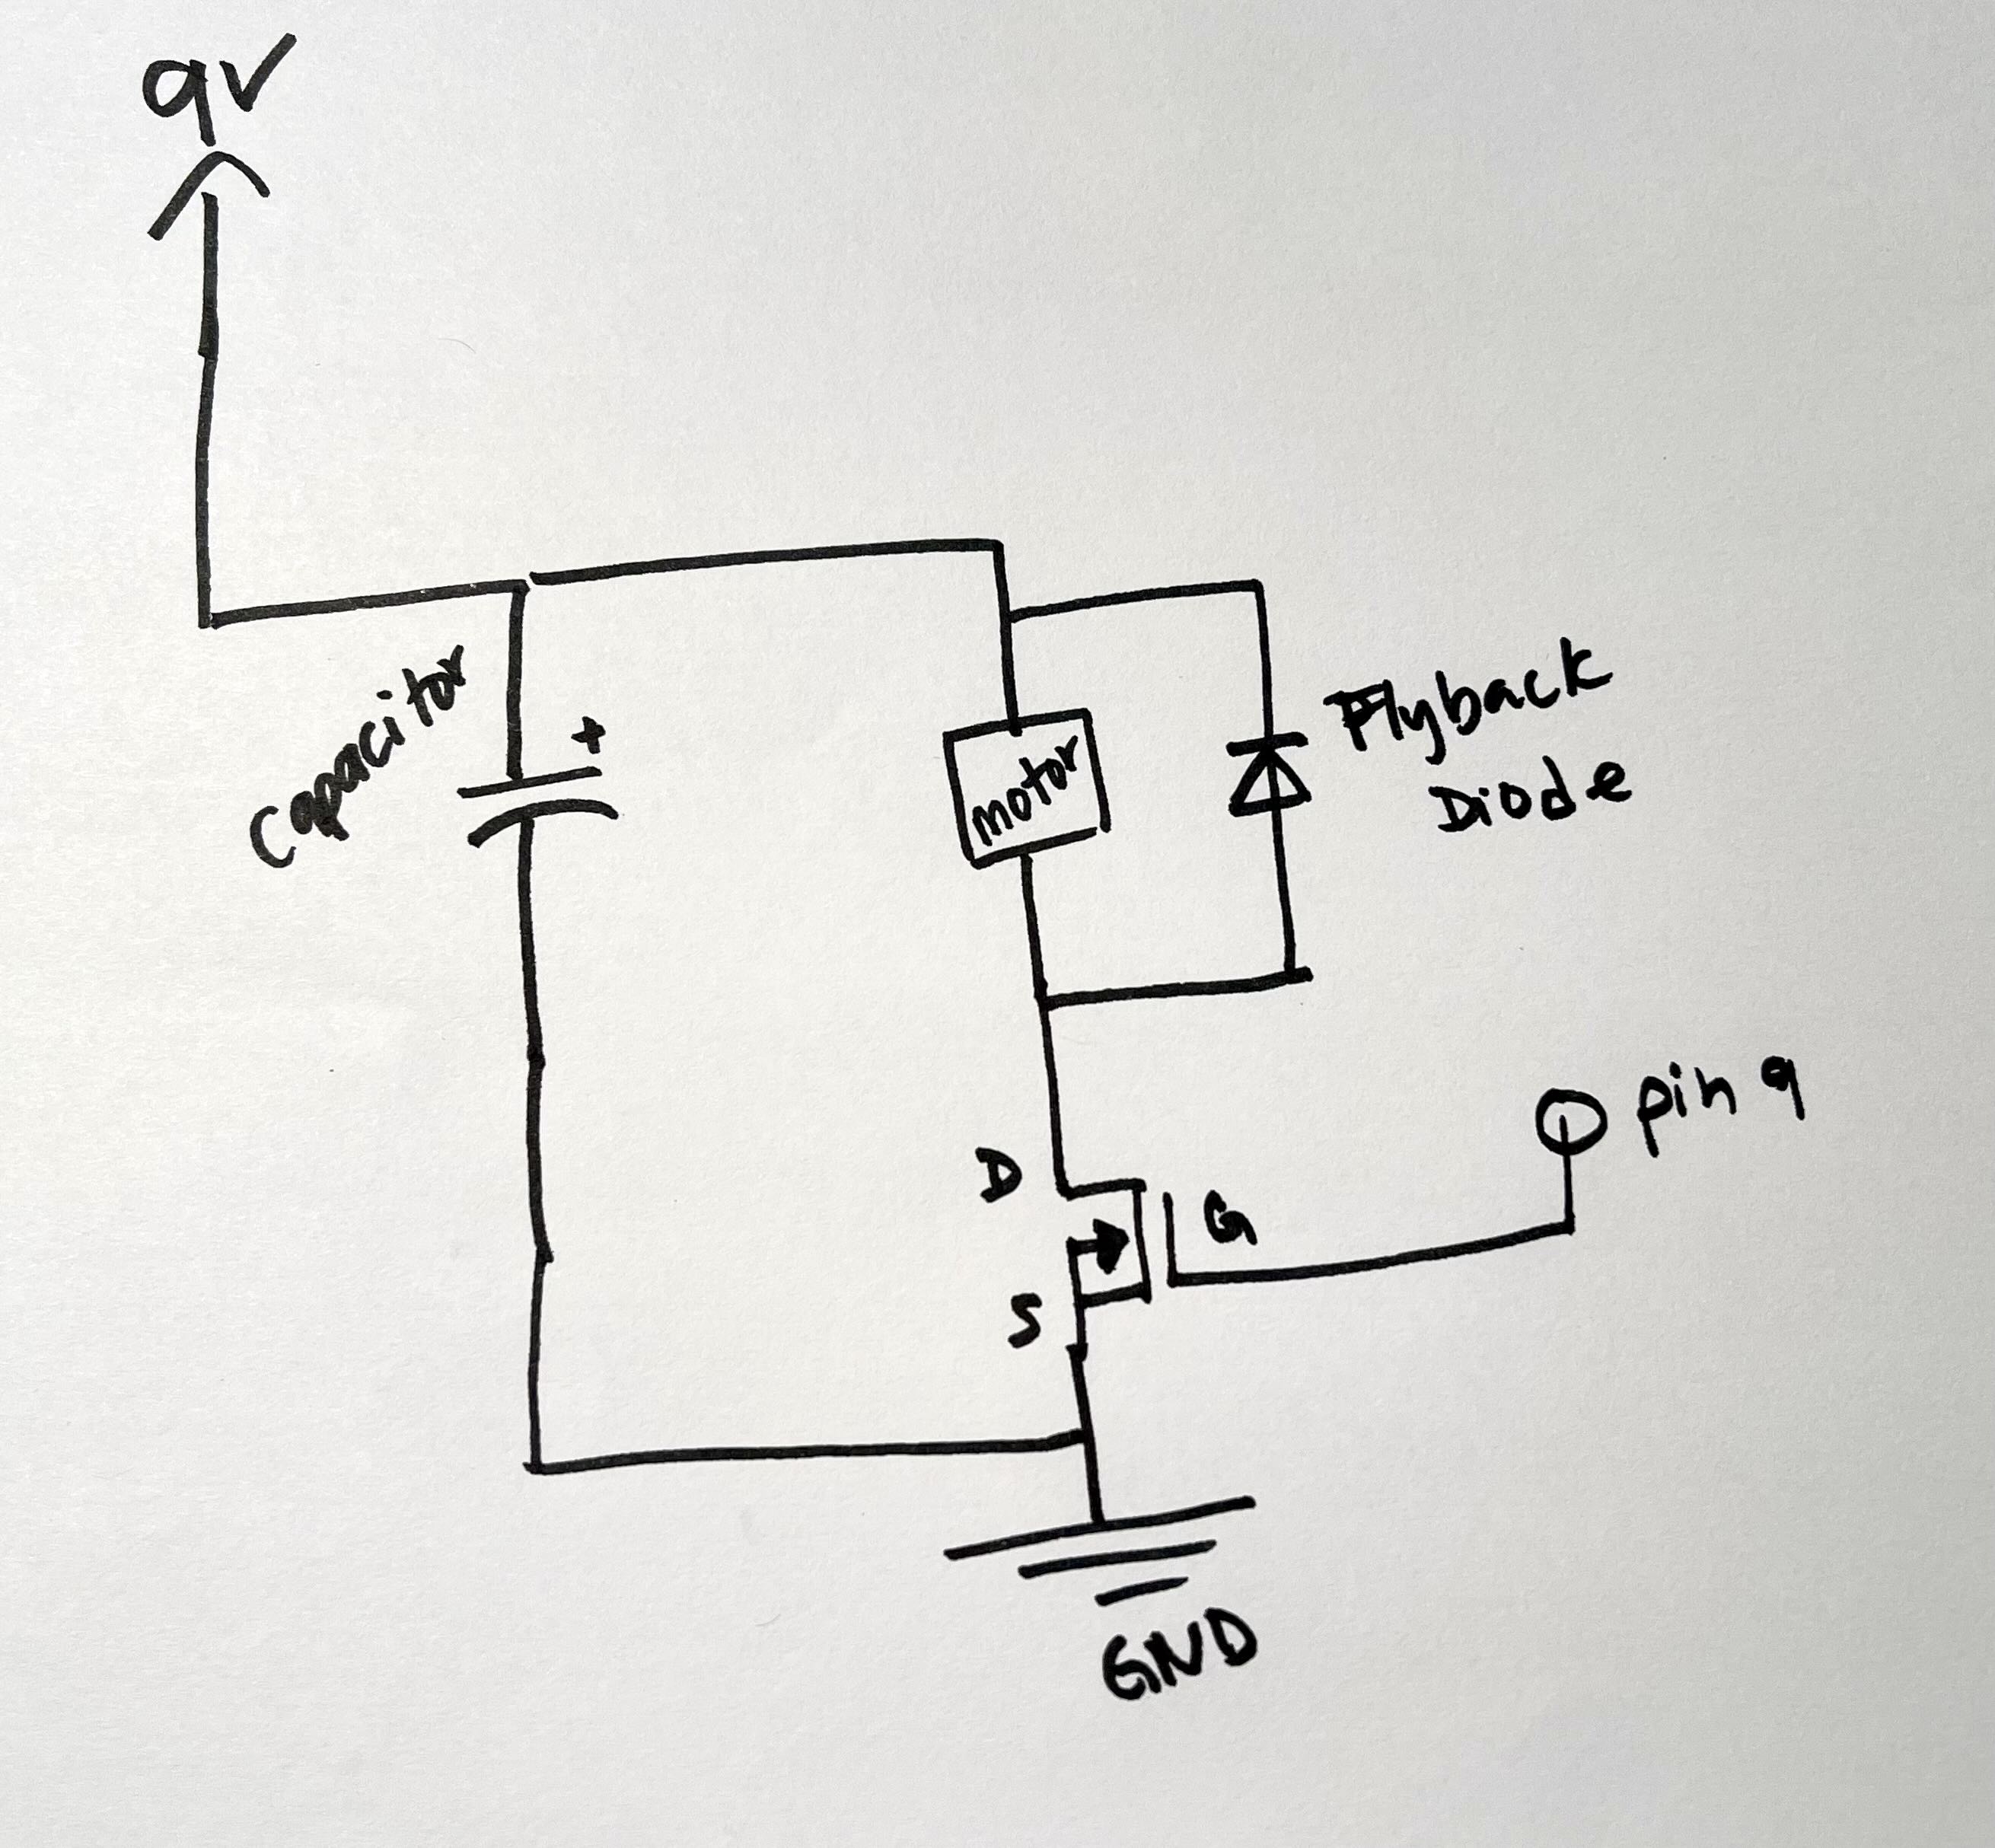 9V
Capacitor
+
motor
Flyback
Diode
pin 9
D
G
S
GND